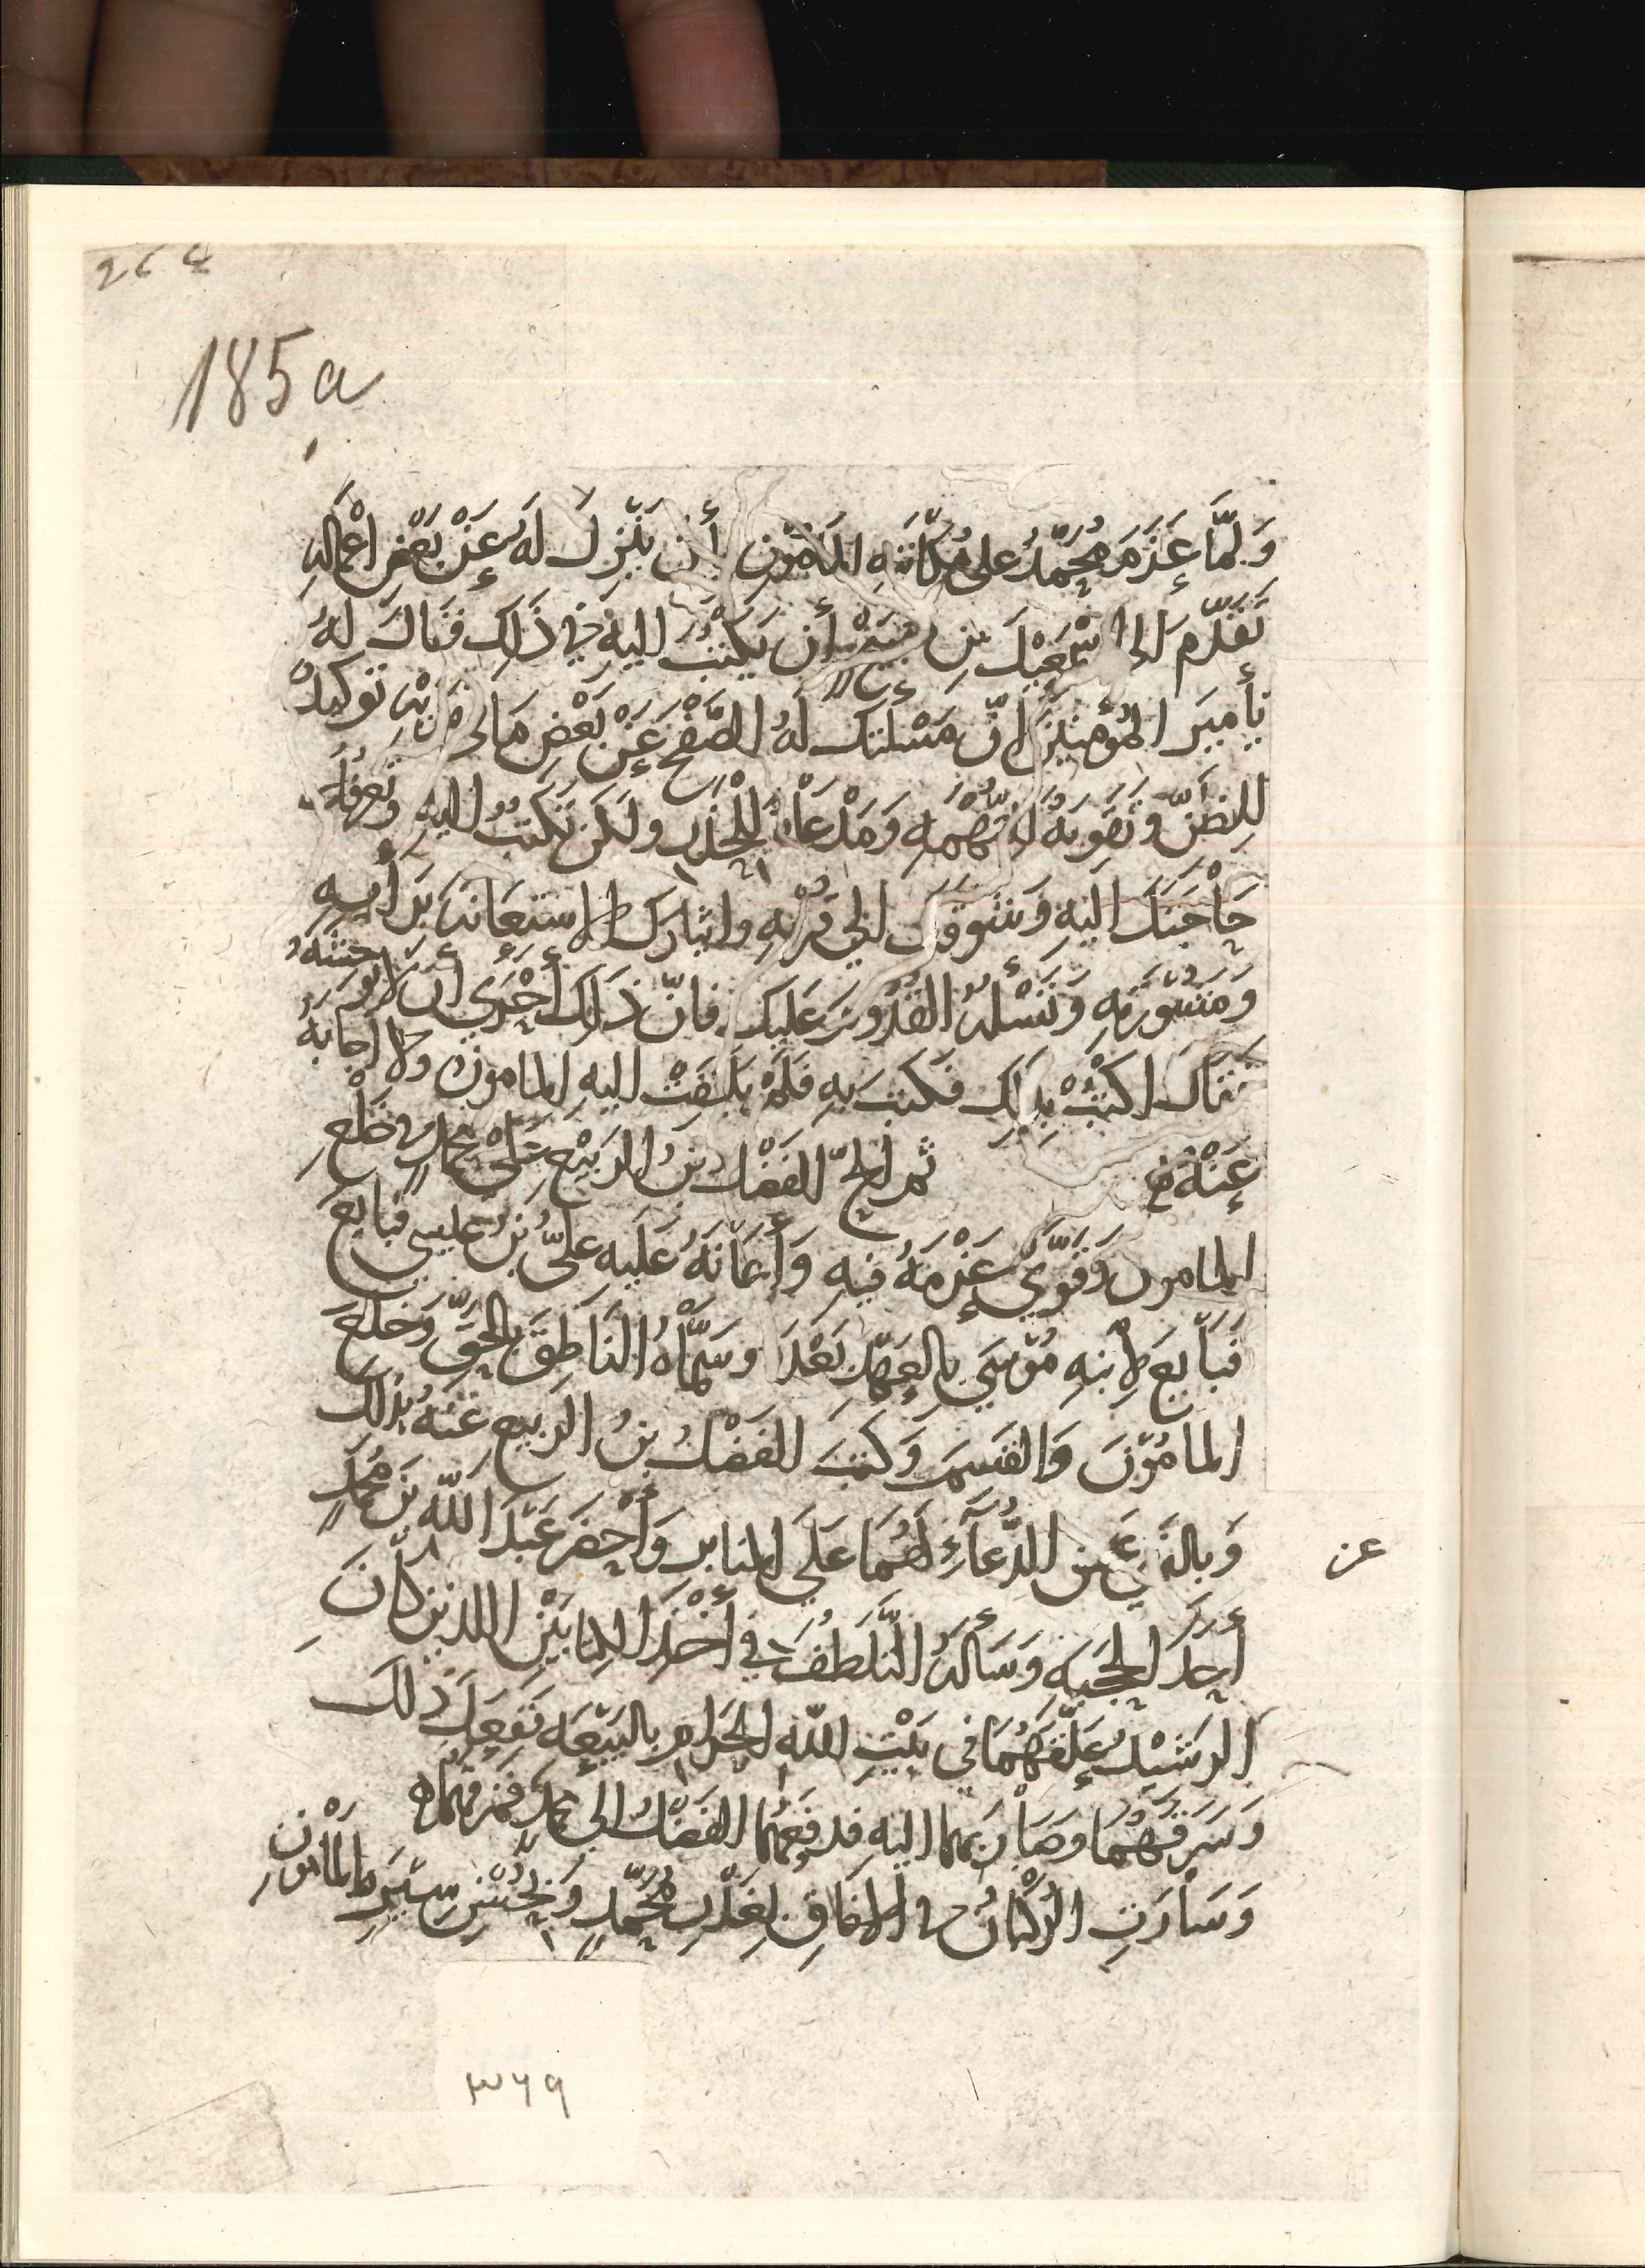 264
185a
وَلَمَّا عَزَمَ مُحَمَّدُ على مُكاتَبَةِ المَامُون أن يَنْزِلَ لَهُ عَنْ بَعْضِ اعْمَالِهِ
تَقَدَّمَ إلى اسْمعِيْلَ بنِ صبيح أن يَكْتُبَ اليهِ في ذَلِك فَقَالَ لَهُ
يأمِيرَ المُؤْمِنِينَ إنّ مَسْلتك لَهُ الصَّفْحَ عَنْ بَعْضِ مَا في يَدَيْهِ تَوكيدٌ
لِلظَنِّ وتَقوِيَةٌ لِلتُّهْمَهِ وَمَدْعَاة لِلْحذَرِ ولَكن تَكْتُبُ اليهِ وتُعرِفُهُ
حَاْجَتَكَ اليهِ وَشَوقَكَ الي قُرْبهِ وايثارك الاستعَانَة بَرَأيهِ
وَمَشُورَتِهِ وَتَسْلهُ القُدُومَ عَلَيك فَانّ ذَلِك أَحْرَي أن لا يوحشَهُ
فَقَالَ اكتبْ بِذَلِك فَكَتَبَ بِهِ فَلَمْ يَلْتَفِتْ اليهِ المامون ولا اجَابَهُ
عَنْهُ ثم الحَّ الفَضْلُ بنُ الرَبيْعِ عَلَى مُحَمدٍ في خَلْعِ
المامون وَقَوَّي عَزْمَهُ فيهِ وَأَعَانَهُ عَلَيهِ عليُّ بْنُ عيسى فبايَعَ
فَبَايَعَ لِابْنِهِ مُوْسَي بالعَهْدِ بَعْدَهُ وسَمَّاهُ النَاطِقَ بالحَقِّ وَخَلَعَ
المامُوْنَ وَالقسمَ وَكتبَ الفَضْلُ بنُ الرَبيعِ عَنْهُ بِذَلك
وَبالنَهْيِ عن الدُّعَآءِ لَهُمَا عَلَي المنابر وَأَحْضَرَ عَبْدَ اللّهِ بْنَ مُحَمدٍ
عن
أَحَدَ الحَجَبَهِ وَسَألهُ التَّلَطُفَ في أَخْذِ الكِتابَيْنِ اللذين كَانَ
الرَشيْدُ عَلّقَهُمَا في بَيْتِ اللّهِ الحَرامِ بالبَيْعَهِ فَفَعَلَ ذَلك
وَسَرَقَهُمَا وصَارَ بهما اليهِ فَدَفَعَهُمَا الفَضْلُ الي مُحَمَّدٍ فَمَزقهُمَا
وَسَاْرَتِ الرُكْبَانُ في الآفَاقِ بِغَدْرِ مُحَمَّدٍ وَبِحُسْنِ سِيْرَةِ المامُوْن
۳۶۹